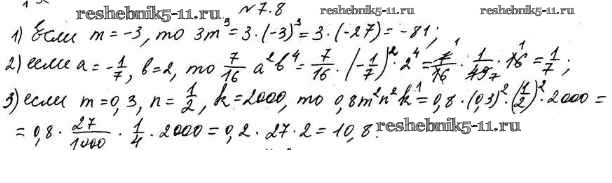 №7.8
reshebnik5-11.ru
reshebnik5-11.ru
1) Если m = -3, то 3m³ = 3·(-3)³ = 3·(-27) = -81;
2) если a = -1/7, b = 2, то 7/16 a²b⁴ = 7/16·(-1/7)²·2⁴ = 7/16·1/49·16 = 1/7;
3) если m = 0,3, n = 1/2, k = 2000, то 0,8m²n²k¹ = 0,8·(0,3)²·(1/2)²·2000 =
= 0,8·27/1000·1/4·2000 = 0,2·27·2 = 10,8.
reshebnik5-11.ru